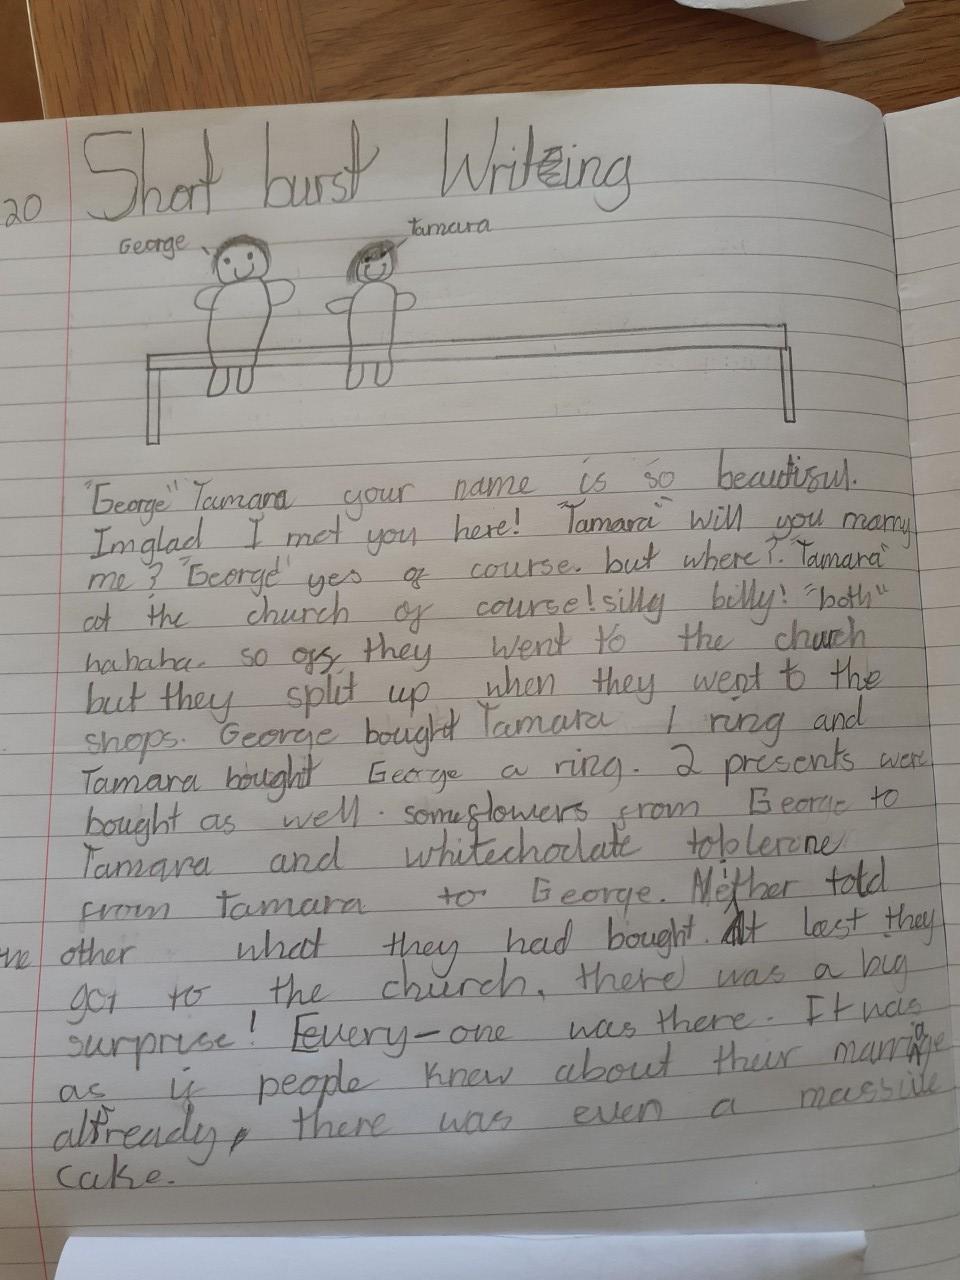 20 Short burst Writeing
George
Tamara
"George" Tamara your name is so beautisul.
Imglad I met you here! "Tamara" will you marry
me? "George" yes of course. but where? "Tamara"
at the church of course! silly billy! "both"
hahaha. so off they went to the church
but they split up when they went to the
shops. George bought Tamara 1 ring and
Tamara bought George a ring. 2 presents were
bought as well. someflowers from George to
Tamara and whitechoclate toblerone
from Tamara to George. Niether told
the other what they had bought. At last they
got to the church, there was a big
surprise! Every-one was there. It was
as if people knew about their marriage
already, there was even a massive
cake.